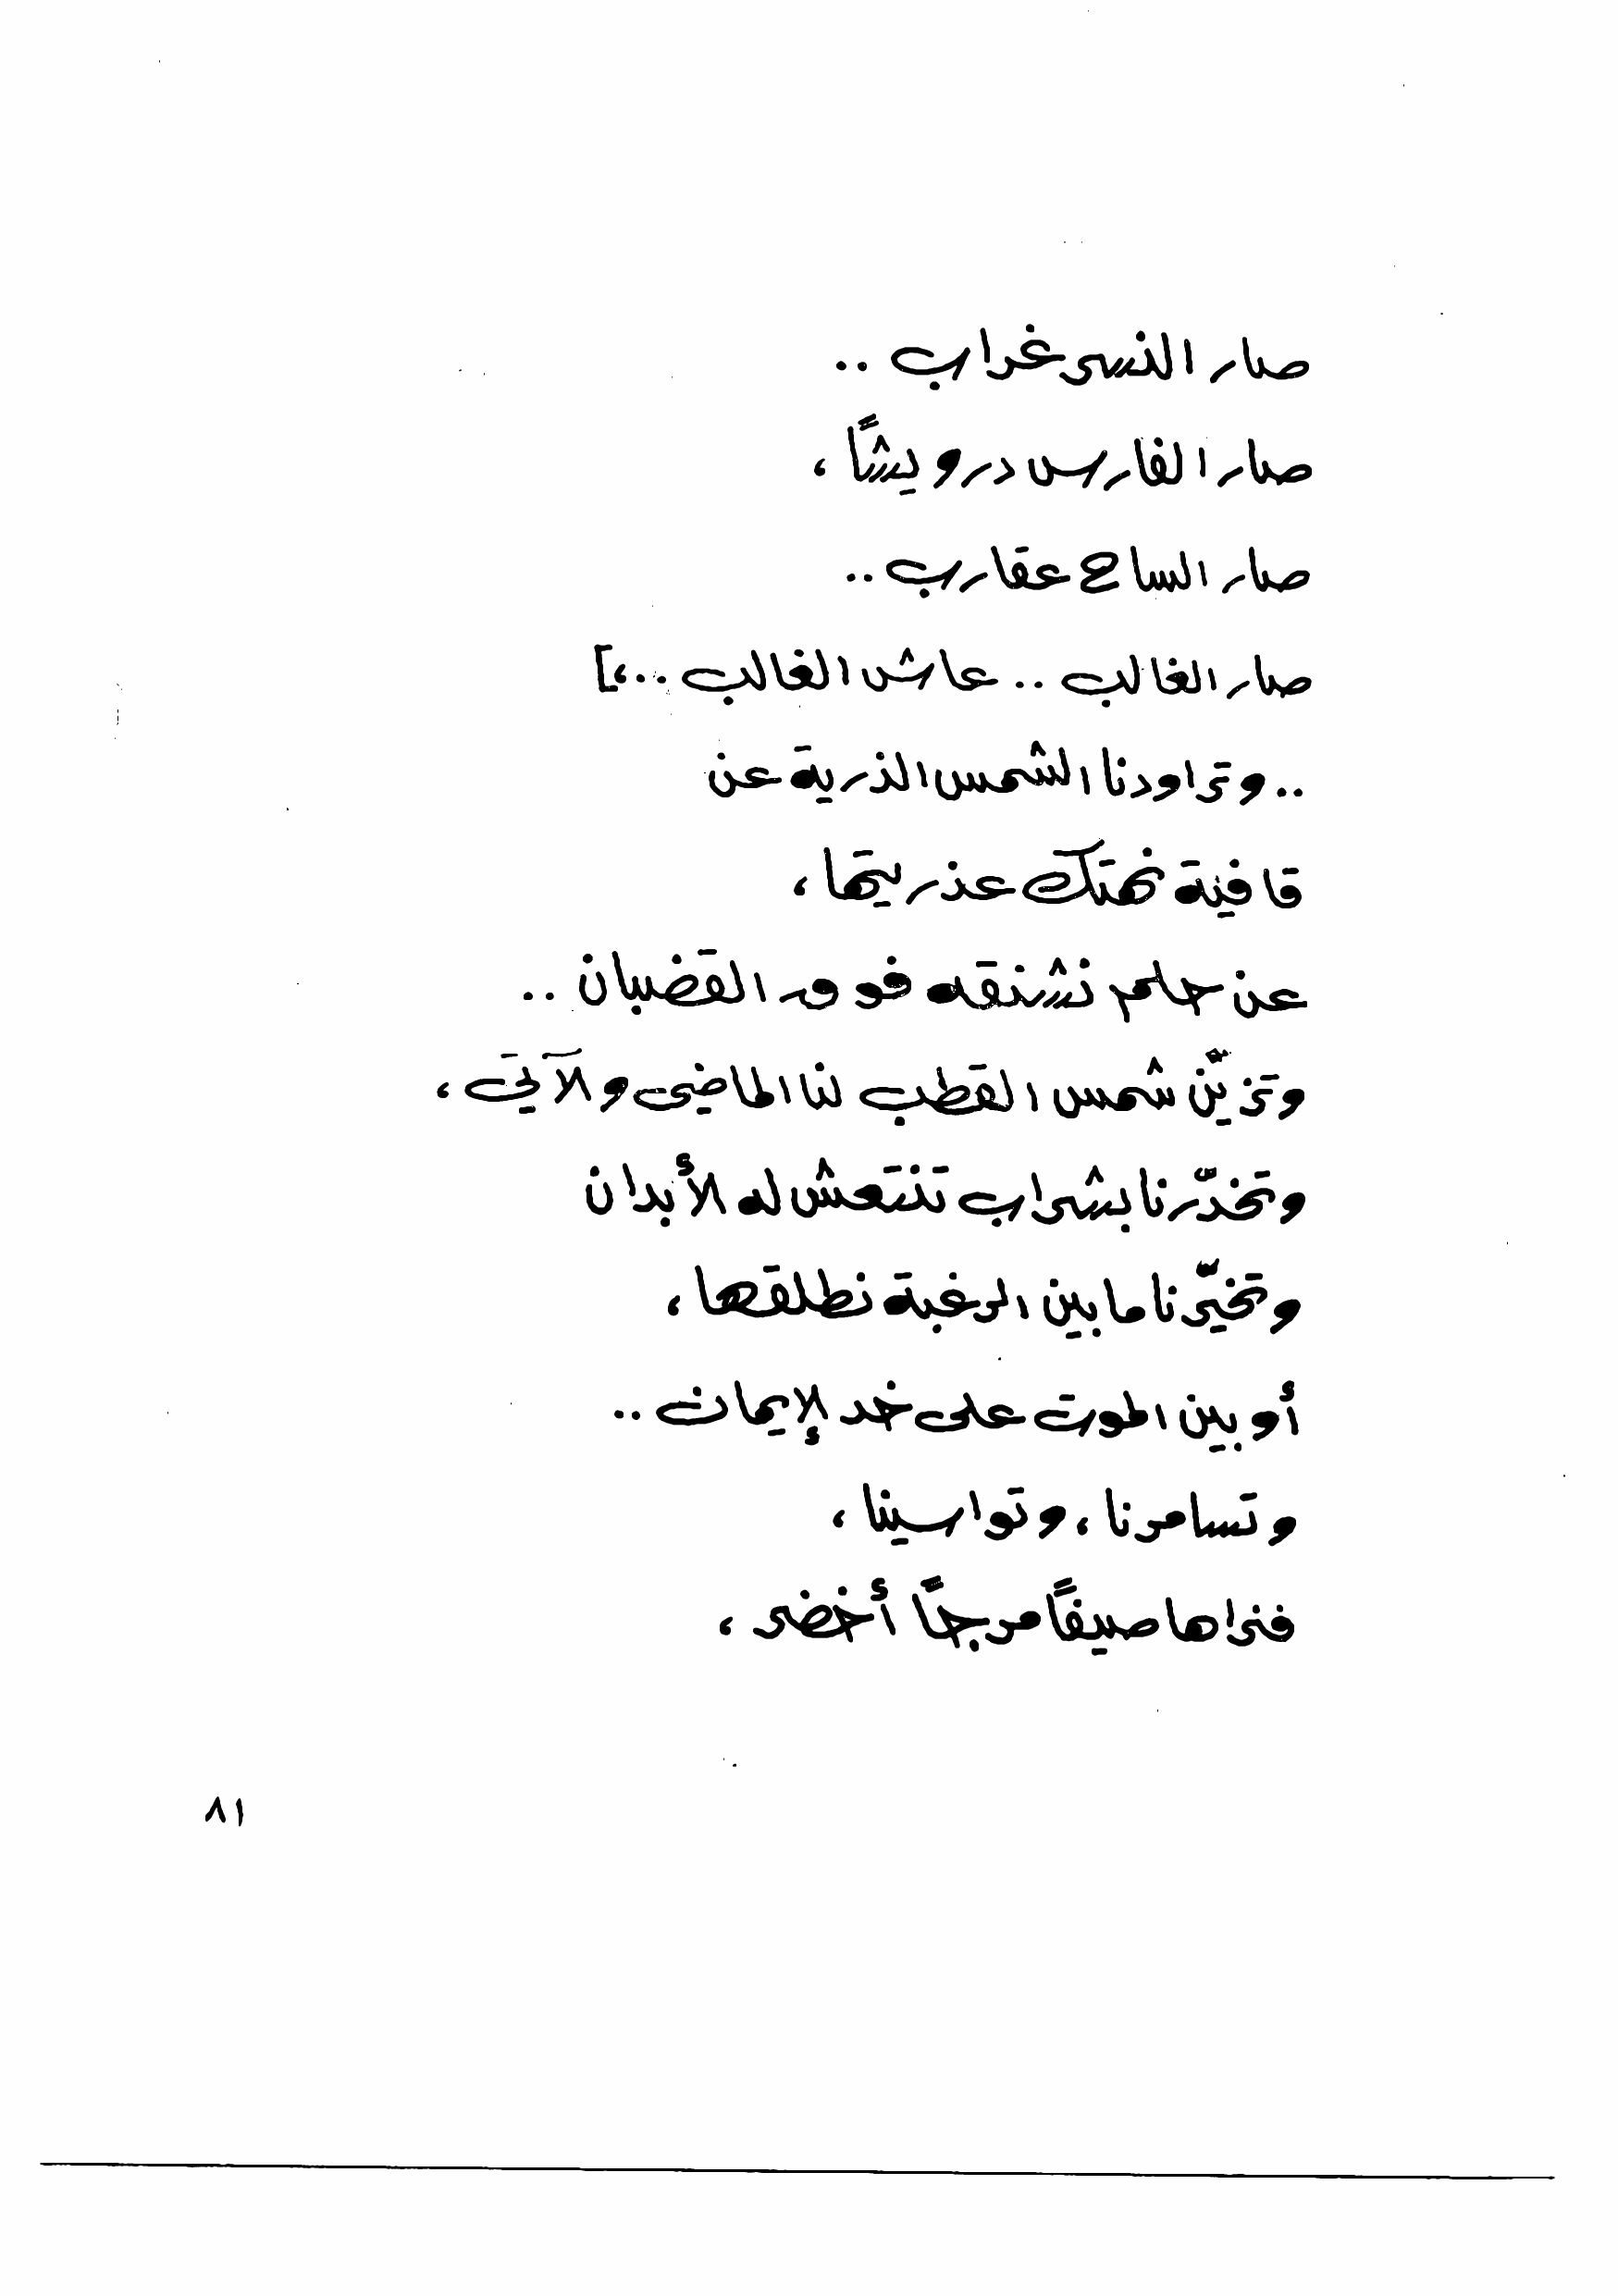 صار النسر غراب ..
صار الفارس درويشًا ،
صار الساح عقارب ..
صار الغالب .. عاش الغالب ..،]
.. وتراودنا الشمس الذرية عن
قافية نهتك عذريتها ،
عن حلم نشنقه فوق القضبان ..
وتزيّن شمس القطب لنا الماضى والآتى ،
وتخدّرنا بشراب تنتعش له الأبدان
وتخيّرنا ما بين الرغبة نطلقها ،
أو بين الموت على خد الإيمان ..
وتسامرنا ، وتواسينا ،
فنراها صيفًا مرجًا أخضر ،
٨١